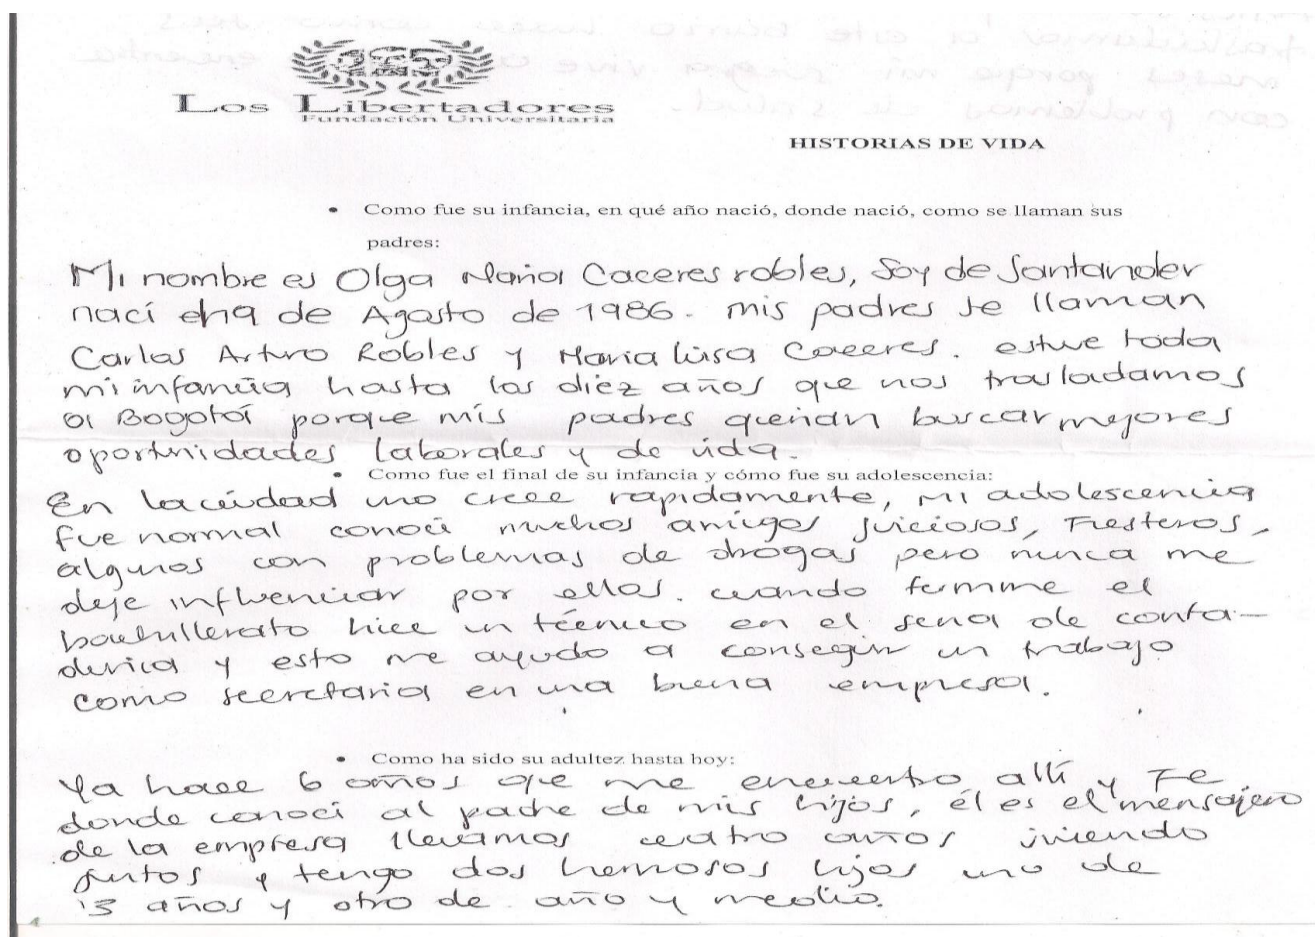 Los Libertadores
Fundación Universitaria
HISTORIAS DE VIDA
• Como fue su infancia, en qué año nació, donde nació, como se llaman sus
padres:
Mi nombre es Olga Maria Caceres robles, Soy de Santander
nací el 19 de Agosto de 1986. mis padres se llaman
Carlos Arturo Robles y Maria luisa Caceres. estuve toda
mi infancia hasta los diez años que nos trasladamos
a Bogotá porque mis padres querian buscar mejores
oportunidades laborales y de vida.
• Como fue el final de su infancia y cómo fue su adolescencia:
En la ciudad uno crece rapidamente, mi adolescencia
fue normal conoci muchos amigos juiciosos, Fiesteros,
algunos con problemas de drogas pero nunca me
deje influenciar por ellos. cuando termine el
bachillerato hice un técnico en el sena de conta-
duria y esto me ayudo a conseguir un trabajo
como secretaria en una buena empresa.
• Como ha sido su adultez hasta hoy:
Ya hace 6 años que me encuentro allí y Fe
donde conoci al padre de mis hijos, él es el mensajero
de la empresa llevamos cuatro años viviendo
juntos y tengo dos hermosos hijos uno de
3 años y otro de año y medio.